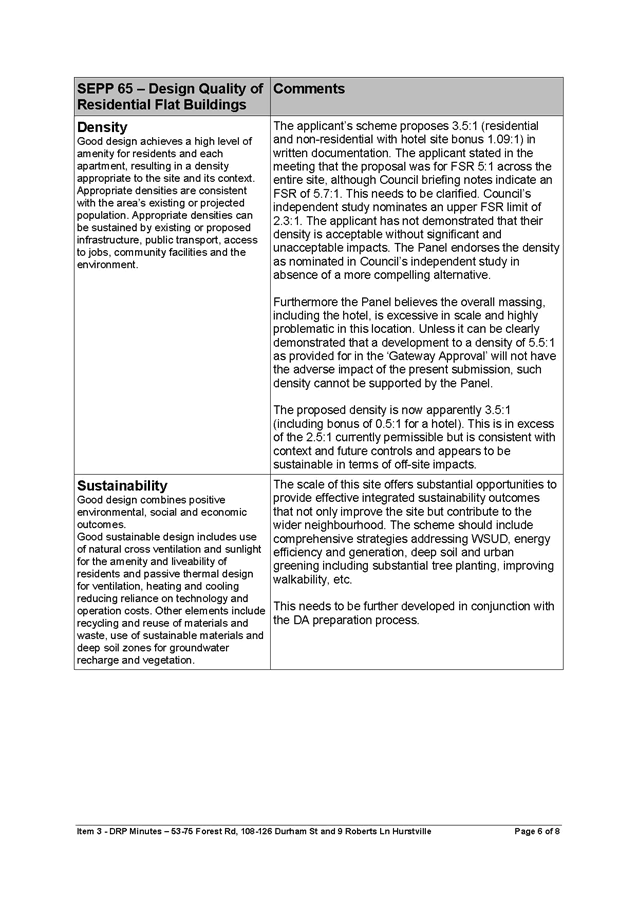 SEPP 65 – Design Quality of
Residential Flat Buildings
Comments
Density
Good design achieves a high level of
amenity for residents and each
apartment, resulting in a density
appropriate to the site and its context.
Appropriate densities are consistent
with the area's existing or projected
population. Appropriate densities can
be sustained by existing or proposed
infrastructure, public transport, access
to jobs, community facilities and the
environment.
The applicant's scheme proposes 3.5:1 (residential
and non-residential with hotel site bonus 1.09:1) in
written documentation. The applicant stated in the
meeting that the proposal was for FSR 5:1 across the
entire site, although Council briefing notes indicate an
FSR of 5.7:1. This needs to be clarified. Council's
independent study nominates an upper FSR limit of
2.3:1. The applicant has not demonstrated that their
density is acceptable without significant and
unacceptable impacts. The Panel endorses the density
as nominated in Council's independent study in
absence of a more compelling alternative.
Furthermore the Panel believes the overall massing,
including the hotel, is excessive in scale and highly
problematic in this location. Unless it can be clearly
demonstrated that a development to a density of 5.5:1
as provided for in the 'Gateway Approval' will not have
the adverse impact of the present submission, such
density cannot be supported by the Panel.
The proposed density is now apparently 3.5:1
(including bonus of 0.5:1 for a hotel). This is in excess
of the 2.5:1 currently permissible but is consistent with
context and future controls and appears to be
sustainable in terms of off-site impacts.
Sustainability
Good design combines positive
environmental, social and economic
outcomes.
Good sustainable design includes use
of natural cross ventilation and sunlight
for the amenity and liveability of
residents and passive thermal design
for ventilation, heating and cooling
reducing reliance on technology and
operation costs. Other elements include
recycling and reuse of materials and
waste, use of sustainable materials and
deep soil zones for groundwater
recharge and vegetation.
The scale of this site offers substantial opportunities to
provide effective integrated sustainability outcomes
that not only improve the site but contribute to the
wider neighbourhood. The scheme should include
comprehensive strategies addressing WSUD, energy
efficiency and generation, deep soil and urban
greening including substantial tree planting, improving
walkability, etc.
This needs to be further developed in conjunction with
the DA preparation process.
Item 3 - DRP Minutes – 53-75 Forest Rd, 108-126 Durham St and 9 Roberts Ln Hurstville
Page 6 of 8